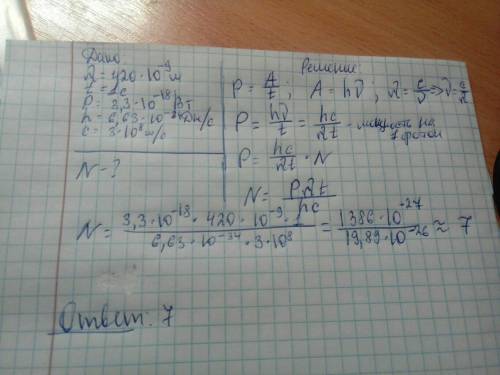 Дано
λ = 420·10⁻⁹ м
t = 1с
P = 3,3·10⁻¹⁸ Вт
h = 6,63·10⁻³⁴ Дж/с
c = 3·10⁸ м/с
N - ?
Решение:
P = A/t ; A = hν ; λ = c/ν => ν = c/λ
P = hν/t = hc/λt - мощность на 1 фотон
P = hc/λt · N
N = Pλt/hc
N = 3,3·10⁻¹⁸ · 420·10⁻⁹ · 1 / 6,63·10⁻³⁴ · 3·10⁸ = 1386·10⁻²⁷ / 19,89·10⁻²⁶ ≈ 7
Ответ: 7